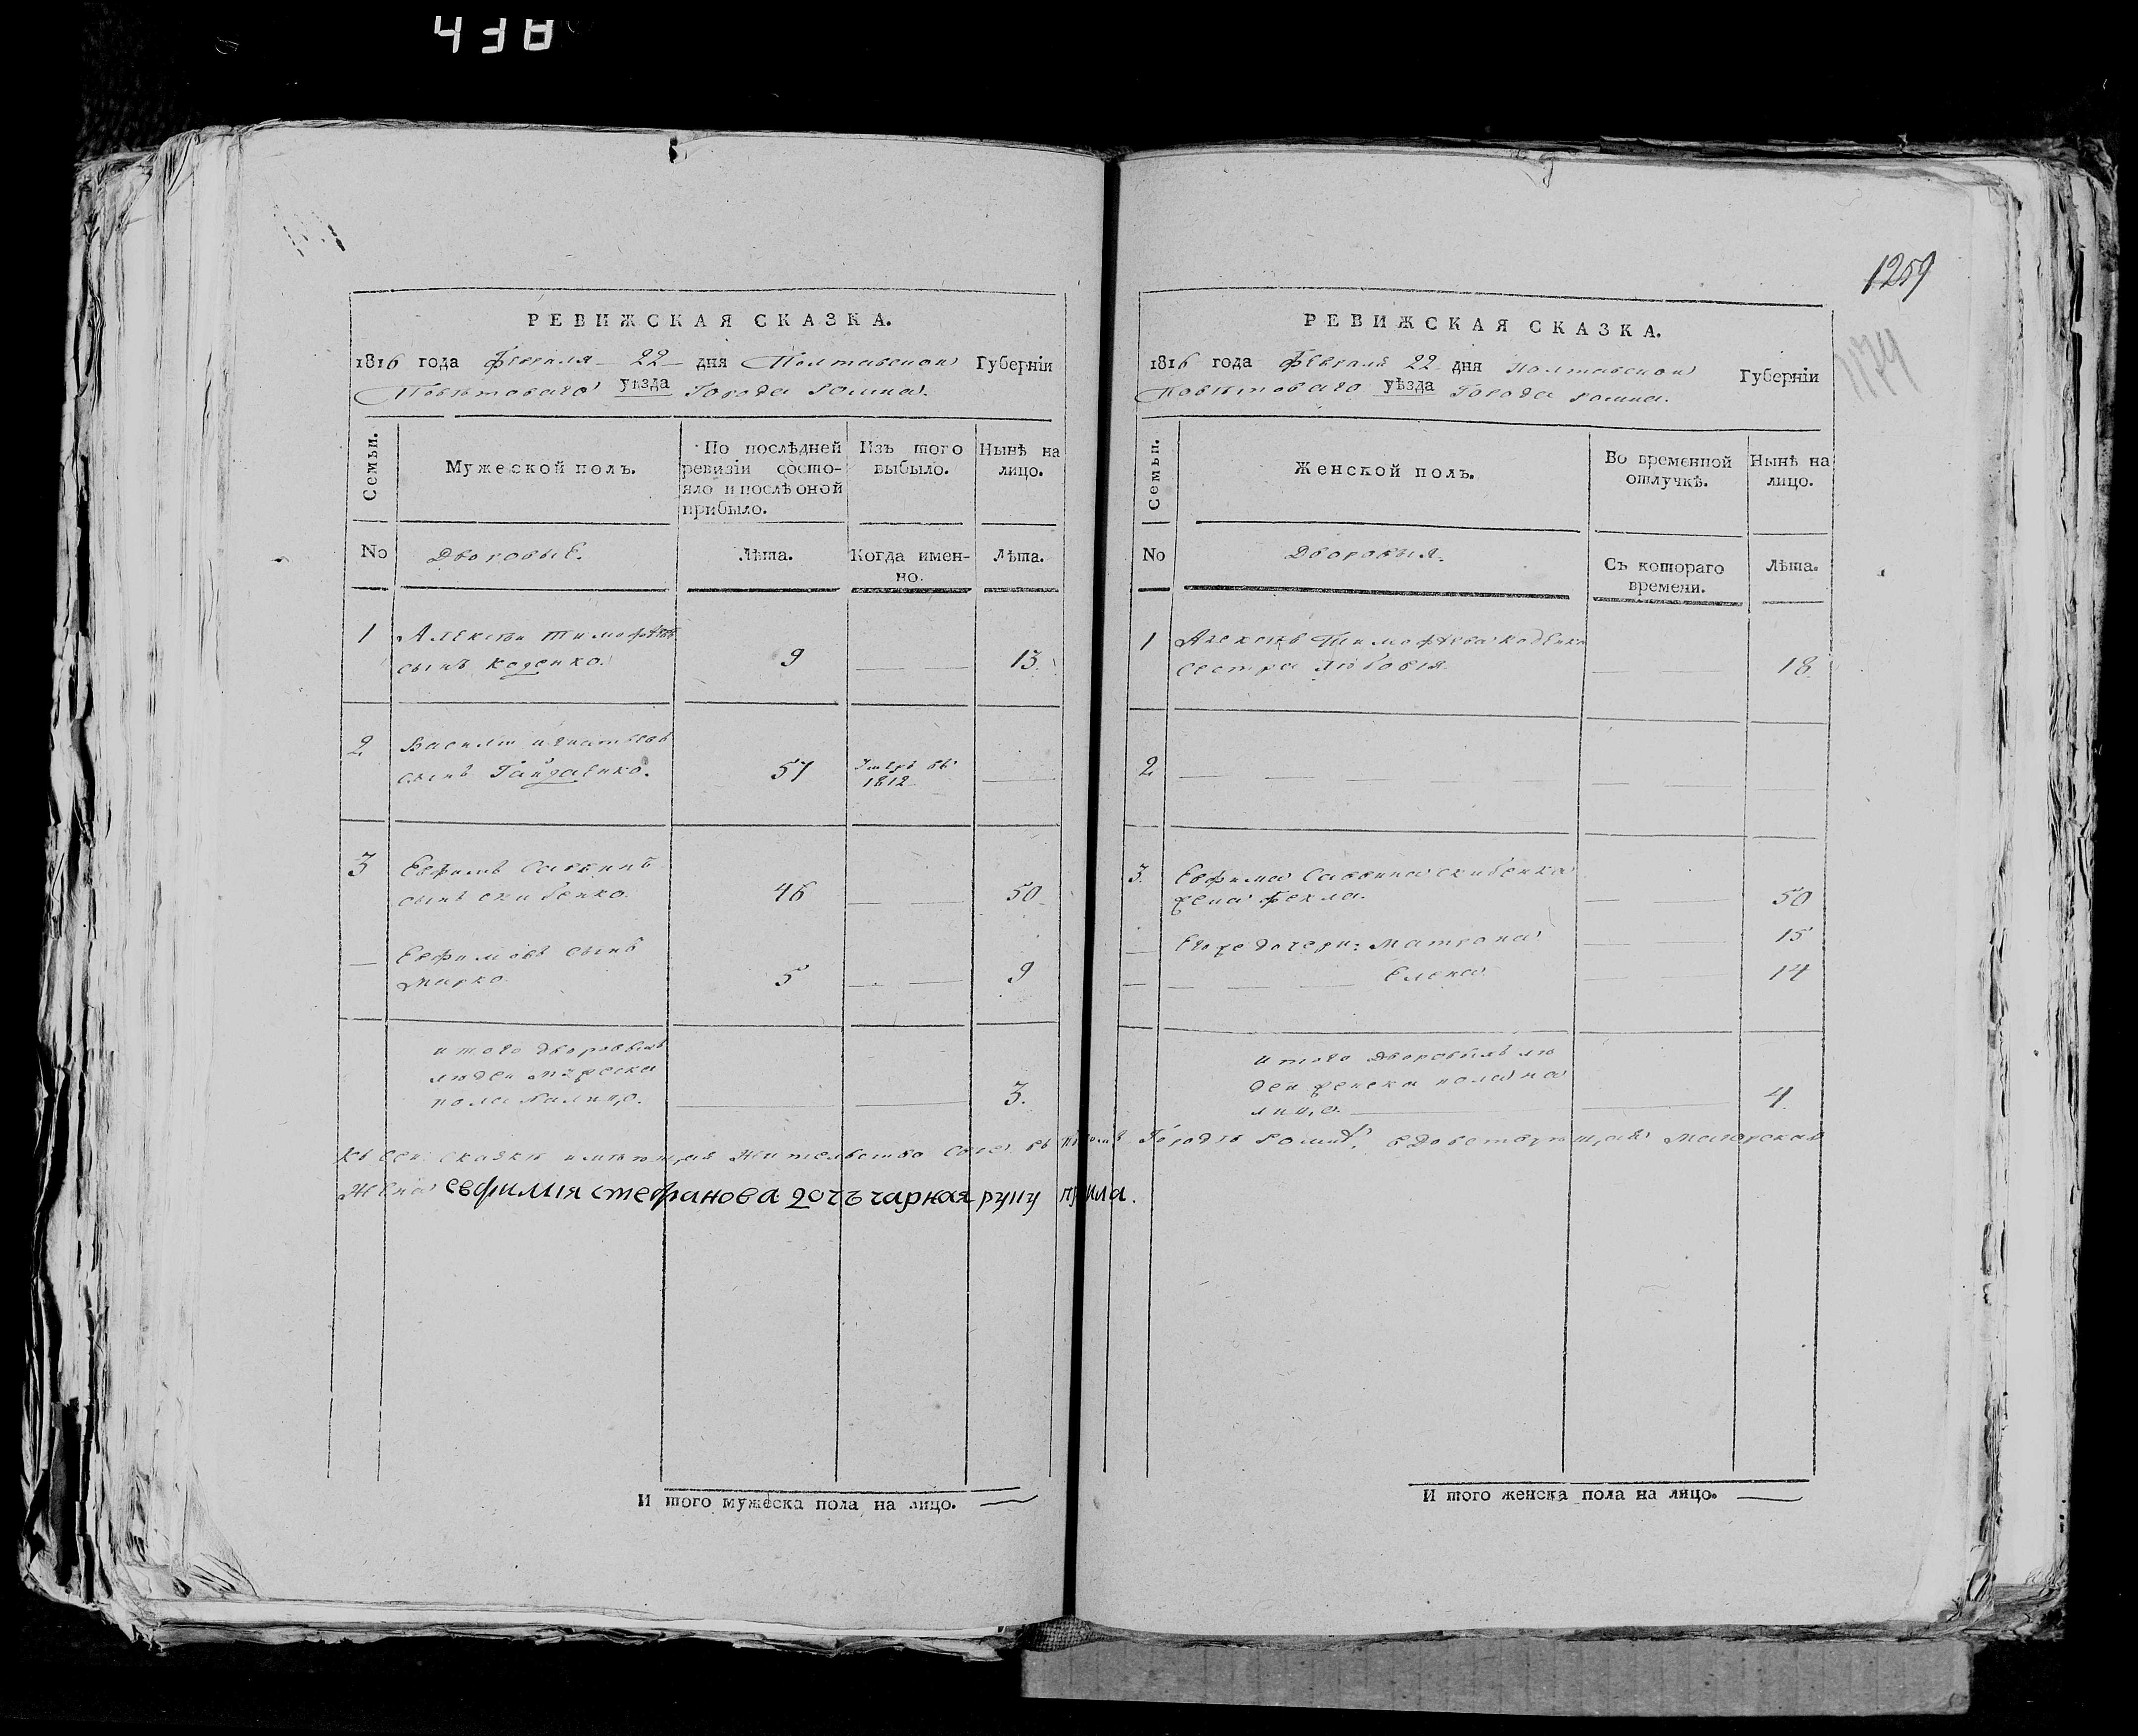 1259
1174
РЕВИЖСКАЯ СКАЗКА.
1816 года Февраля 22 дня Полтавской Губернiи
Повѣтоваго уѣзда Города Ромна.
Семьи.
Мужеской полъ.
По послѣдней ревизiи состояло и послѣ оной прибыло.
Изъ того выбыло.
Нынѣ на лицо.
No
Дворовые.
Лѣта.
Когда именно.
Лѣта.
1 Алексѣй Тимофѣевъ
сынъ Коденко. 9 13.
2 Василiй Игнатьевъ
сынъ Гайдаенко. 57 Умеръ въ
1812
3 Евфимъ Саввинъ
сынъ Скибенко. 46 50
Евфимовъ сынъ
Марко. 5 9
итого дворовыхъ
людей мужеска
пола налицо. 3.
И того мужеска пола на лицо.
РЕВИЖСКАЯ СКАЗКА.
1816 года Февраля 22 дня Полтавской Губернiи
Повѣтоваго уѣзда Города Ромна.
Семьи.
Женской полъ.
Во временной отлучкѣ.
Нынѣ на лицо.
No
Дворовыя.
Съ котораго времени.
Лѣта.
1 Алексѣя Тимофѣева Коденка
сестра Любовiя 18.
2
3. Евфима Саввина Скибенка
жена Фекла. 50
Его же дочери: Матрона 15
Елена 14
итого дворовыхъ лю
дей женска пола на
лицо. 4.
Къ сей скаскѣ имѣющая жительство свое въ Городѣ Ромнѣ, вдовствующая Маiорская
Жена евфимия стефанова дочъ чарная руку
И того женска пола на лицо.